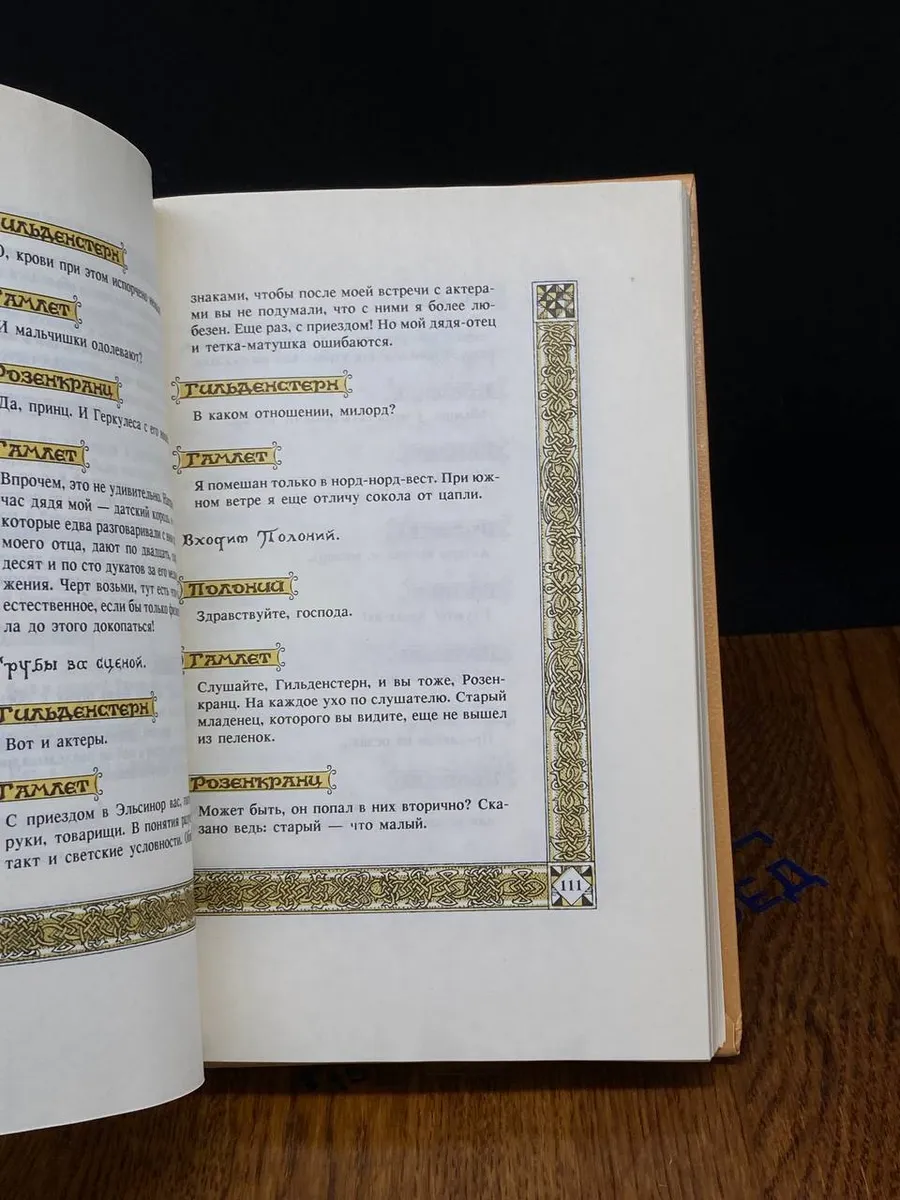 ИЛЬДЕНСТЕРН
О, крови при этом испорчено
ГАМЛЕТ
И мальчишки одолевают?
РОЗЕНКРАНЦ
Да, принц. И Геркулеса с его
ГАМЛЕТ
Впрочем, это не удивительно.
час дядя мой — датский король,
которые едва разговаривали с
моего отца, дают по двадцать,
десят и по сто дукатов за его
жения. Черт возьми, тут есть
естественное, если бы только
ла до этого докопаться!
Трубы за сценой.
ГИЛЬДЕНСТЕРН
Вот и актеры.
ГАМЛЕТ
С приездом в Эльсинор вас,
руки, товарищи. В понятия
такт и светские условности.
знаками, чтобы после моей встречи с актера-
ми вы не подумали, что с ними я более лю-
безен. Еще раз, с приездом! Но мой дядя-отец
и тетка-матушка ошибаются.
ГИЛЬДЕНСТЕРН
В каком отношении, милорд?
ГАМЛЕТ
Я помешан только в норд-норд-вест. При юж-
ном ветре я еще отличу сокола от цапли.
Входит Полоний.
ПОЛОНИЙ
Здравствуйте, господа.
ГАМЛЕТ
Слушайте, Гильденстерн, и вы тоже, Розен-
кранц. На каждое ухо по слушателю. Старый
младенец, которого вы видите, еще не вышел
из пеленок.
РОЗЕНКРАНЦ
Может быть, он попал в них вторично? Ска-
зано ведь: старый — что малый.
111